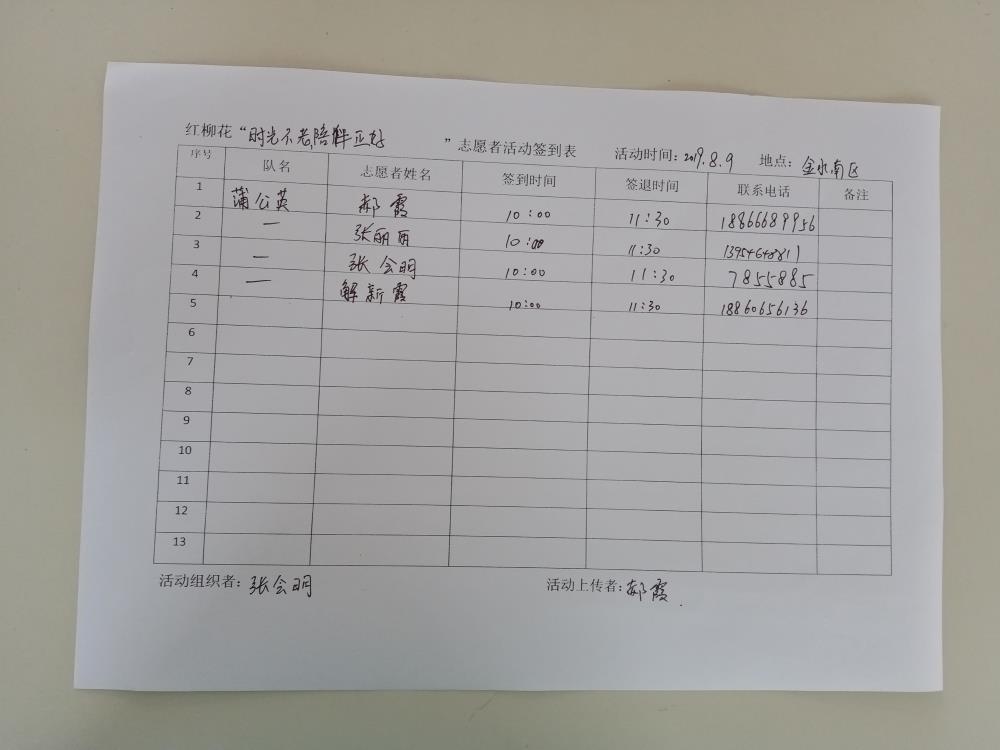 红柳花“时光不老,陪伴正好”志愿者活动签到表 活动时间：2019.8.9 地点：金水南区
序号 队名 志愿者姓名 签到时间 签退时间 联系电话 备注
1 蒲公英 郝霞 10:00 11:30 18866689956
2 — 张丽丽 10:00 11:30 13954648811
3 — 张会明 10:00 11:30 7855885
4 — 解新霞 10:00 11:30 18860656136
5
6
7
8
9
10
11
12
13
活动组织者：张会明 活动上传者：郝霞.